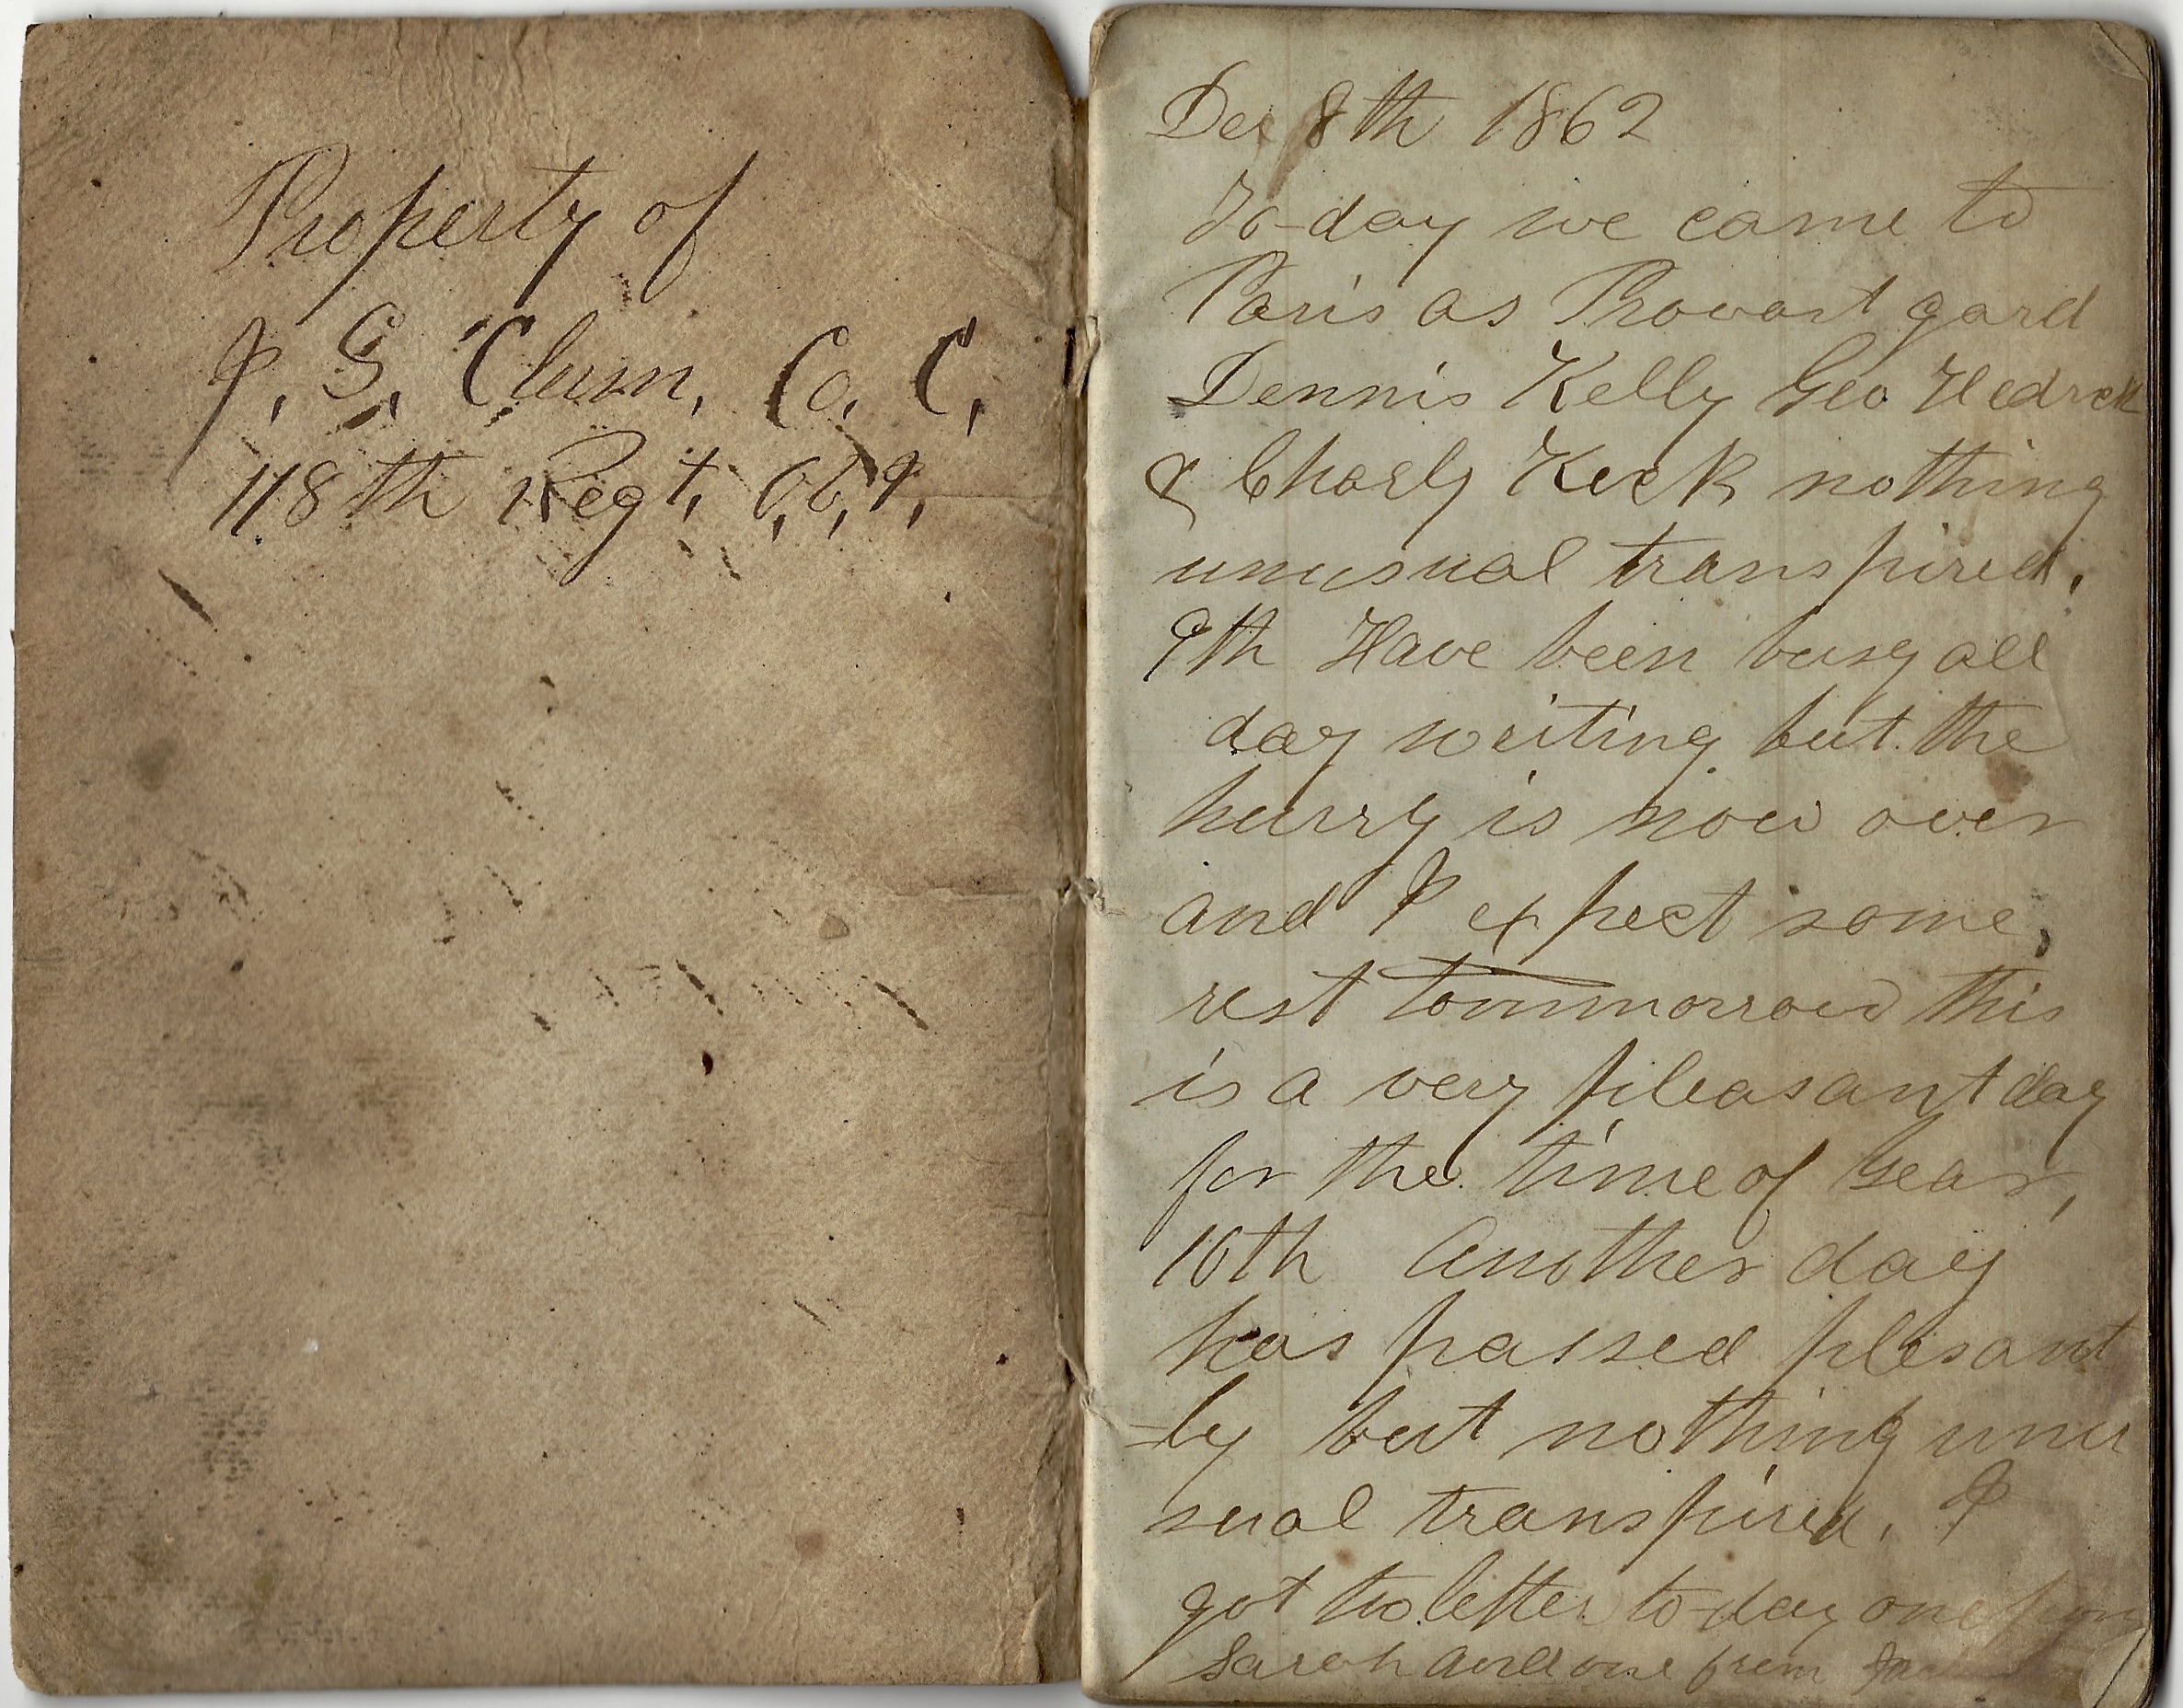 Property of
J. G. Clum, Co, C,
118th Regt, O, V, I,
Dec 8th 1862
To-day we came to
Paris as Provost gard
Dennis Kelly Geo Hedrck
& Charly Keck nothing
unusual transpired.
9th Have been busy all
day writing but the
hurry is now over
and I expect some,
rest tommorrow this
is a very pleasant day
for the time of year,
10th Another day
has passed plesant
-ly but nothing unu
sual transpired. I
got two letter to-day one from
Sarah and one from